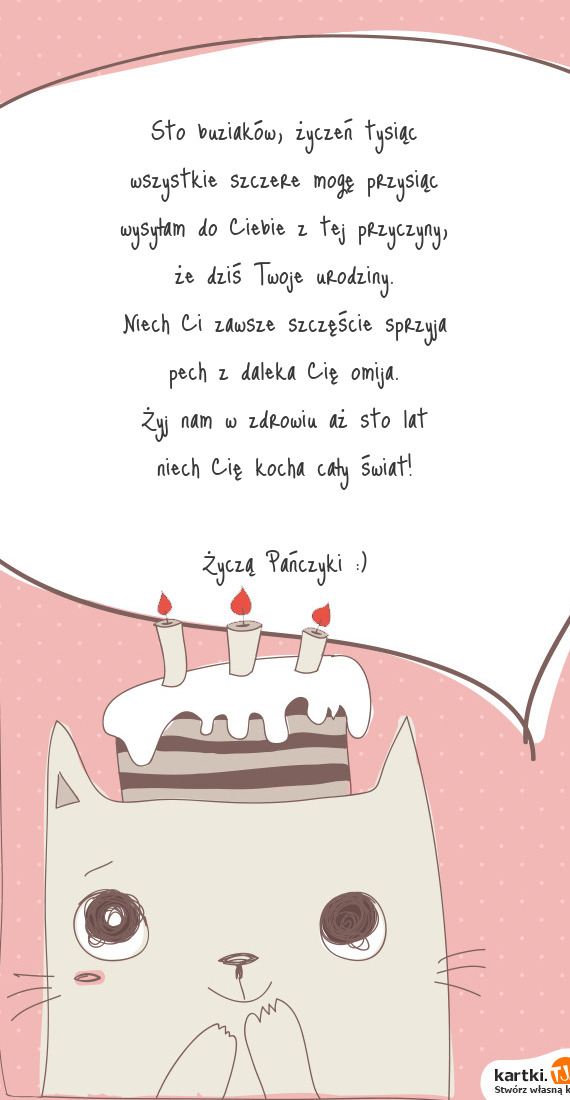 Sto buziaków, życzeń tysiąc
wszystkie szczere mogę przysiąc
wysyłam do Ciebie z tej przyczyny,
że dziś Twoje urodziny.
Niech Ci zawsze szczęście sprzyja
pech z daleka Cię omija.
Żyj nam w zdrowiu aż sto lat
niech Cię kocha cały świat!
Życzą Pańczyki :)
kartki.TJ
Stwórz własną k